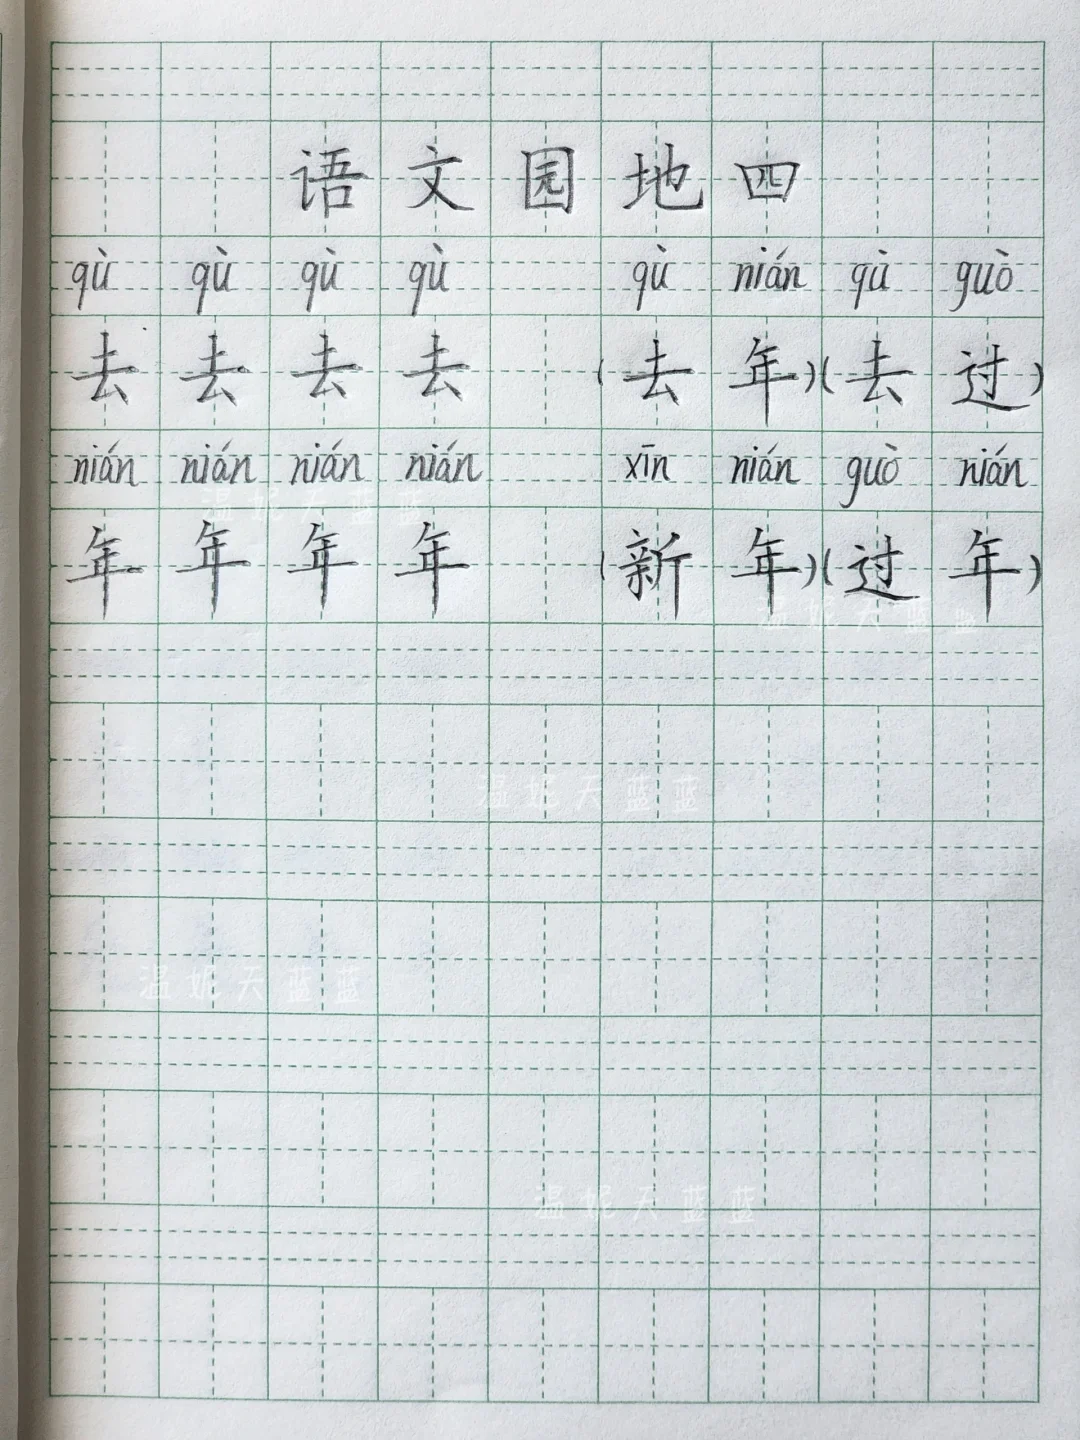 语文园地四
qù qù qù qù qù nián qù guò
去 去 去 去 (去年)(去过)
nián nián nián nián xīn nián guò nián
年 年 年 年 (新年)(过年)
温妮天蓝蓝
温妮天蓝蓝
温妮天蓝蓝
温妮天蓝蓝
温妮天蓝蓝